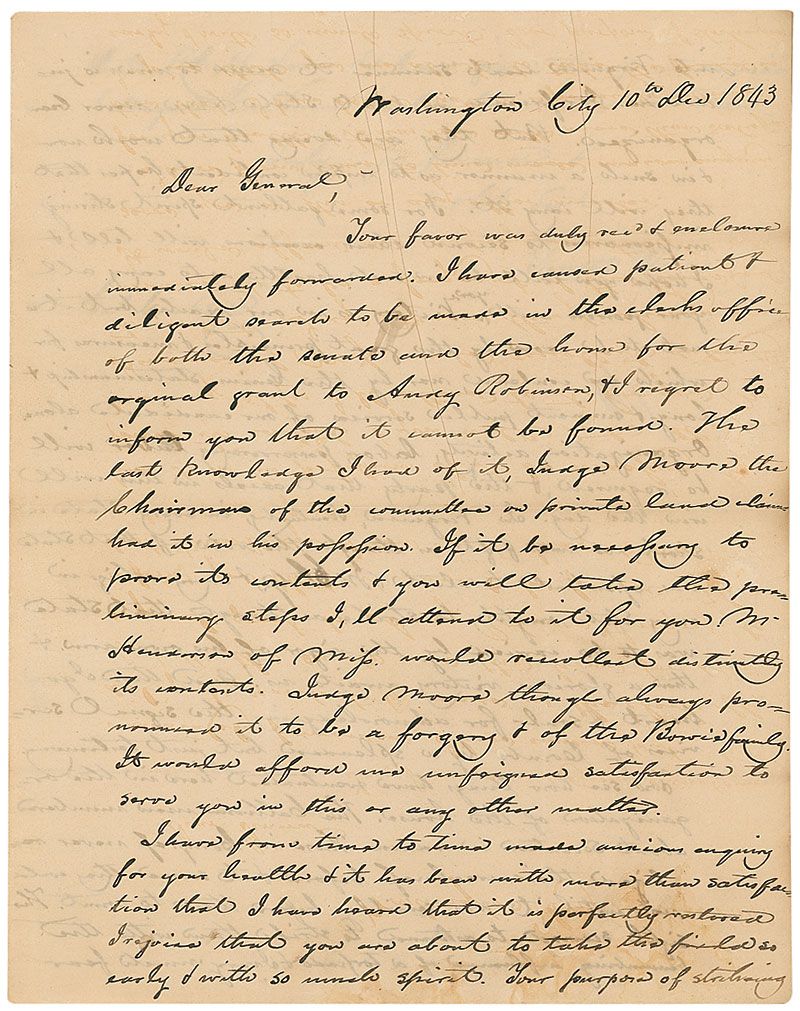 Washington City 10th Dec 1843
Dear General,
Your favor was duly recd & enclosure
immediately forwarded. I have caused patient &
diligent search to be made in the clerks office
of both the senate and the house for the
orginal grant to Andy Robinson, & I regret to
inform you that it cannot be found. The
last knowledge I had of it, Judge Moore the
Chairman of the committee on private land claims
had it in his possession. If it be necessary to
prove its contents & you will take the pre=
liminary steps I,ll attend to it for you. Mr
Henderson of Miss. would recollect distinctly
its contents. Judge Moore though always pro=
nounced it to be a forgery & of the Bowie family.
It would afford me unfeigned satisfaction to
serve you in this or any other matter.
I have from time to time made anxious enquiry
for your health & it has been with more than satisfac=
tion that I have heard that it is perfectly restored
I rejoice that you are about to take the field so
early & with so much spirit. Your purpose of striking